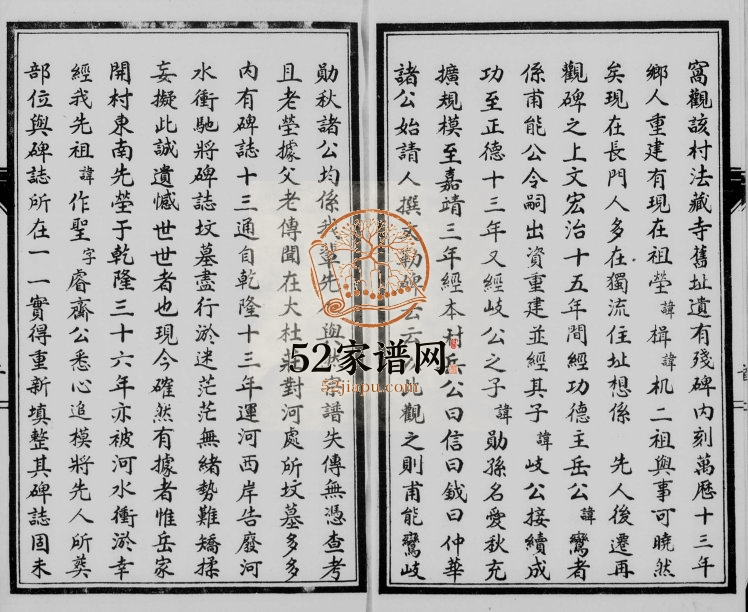 窩觀該村法藏寺舊址遺有殘碑内刻萬歷十三年
鄉人重建有現在祖塋諱楫諱机二祖與事可曉然
矣現在長門人多在獨流住址想係 先人後遷再
觀碑之上文宏治十五年間經功德主岳公諱鸞者
係甫能公令嗣出資重建並經其子諱岐公接續成
功至正德十三年又經岐公之子諱勛孫名愛秋充
擴規模至嘉靖三年經本村岳公曰信曰鉞曰仲華
諸公始請人撰文勒碑云云以此觀之則甫能鸞岐
勛秋諸公均係我輩先人與此宗譜失傳無憑查考
且老塋據父老傳聞在大杜莊對河處所坟墓多多
内有碑誌十三通自乾隆十三年運河西岸告廢河
水衝馳將碑誌坟墓盡行淤迷茫茫無緒勢難矯揉
妄擬此誠遺憾世世者也現今確然有據者惟岳家
開村東南先塋于乾隆三十六年亦被河水衝淤幸
經我先祖諱作聖字睿齋公悉心追模將先人所葬
部位與碑誌所在一一實得重新填整其碑誌固未
52家谱网
52jiapu.com